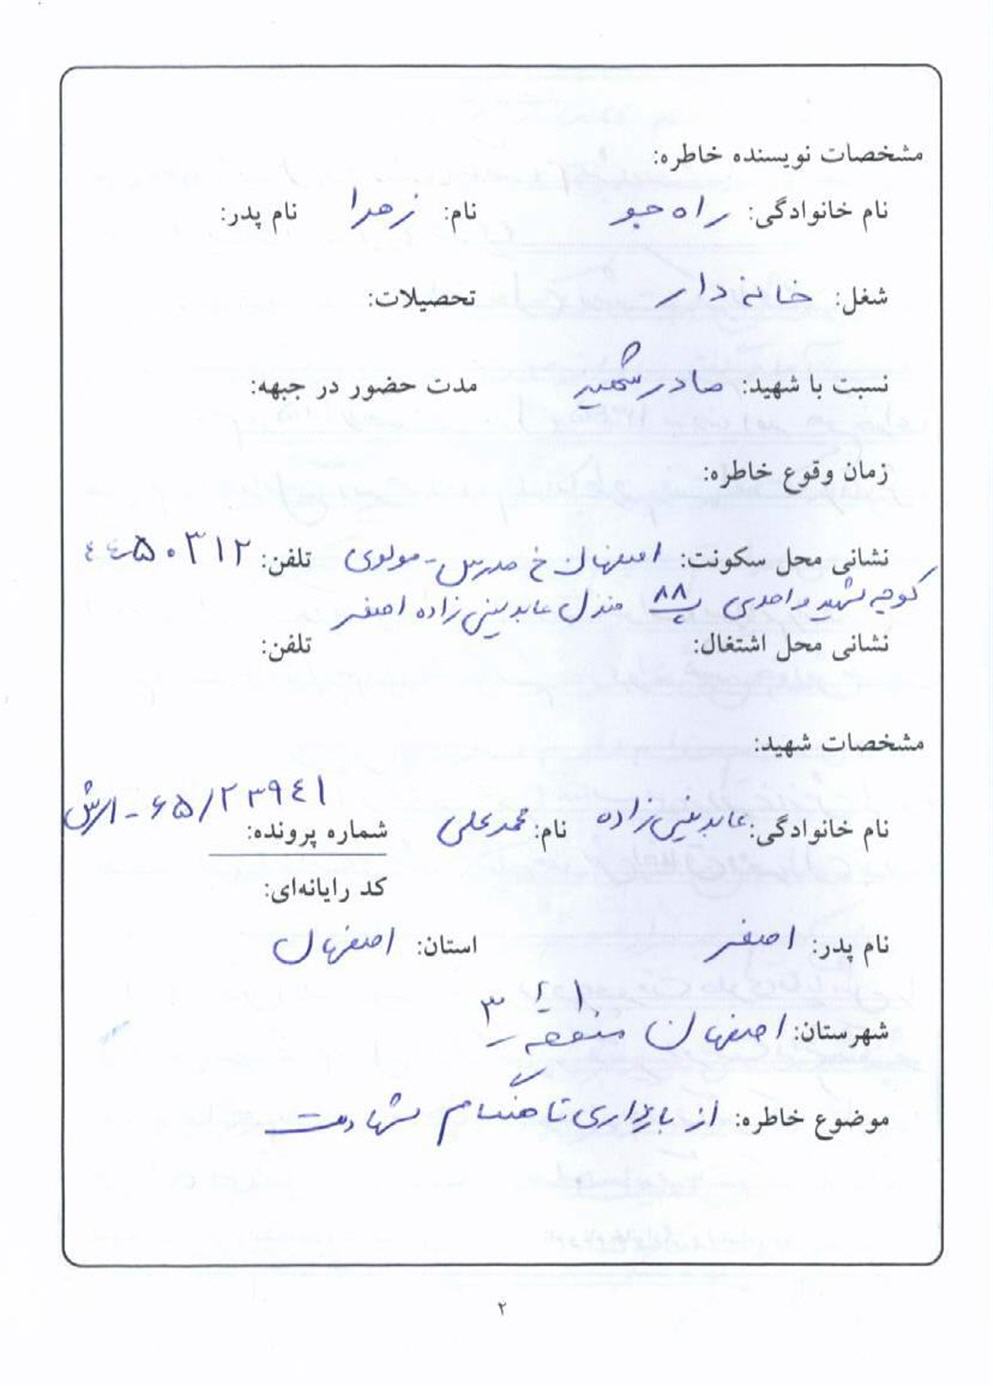 مشخصات نویسنده خاطره:
نام خانوادگی: راه جو نام: زهرا نام پدر:
شغل: خانه دار تحصیلات:
نسبت با شهید: مادر شهید مدت حضور در جبهه:
زمان وقوع خاطره:
نشانی محل سکونت: اصفهان خ مدرس - مولوی تلفن: ٤٤٥٠٣١٢
کوچه شهید واحدی پ ۸۸ منزل عابدینی زاده اصغر
نشانی محل اشتغال: تلفن:
مشخصات شهید:
نام خانوادگی: عابدینی زاده نام: محمدعلی شماره پرونده: ۶۵/۲۳۹٤۱ - ارتش
کد رایانه‌ای:
نام پدر: اصغر استان: اصفهان
شهرستان: اصفهان منطقه ۳
موضوع خاطره: از بارداری تا هنگام شهادت
۲